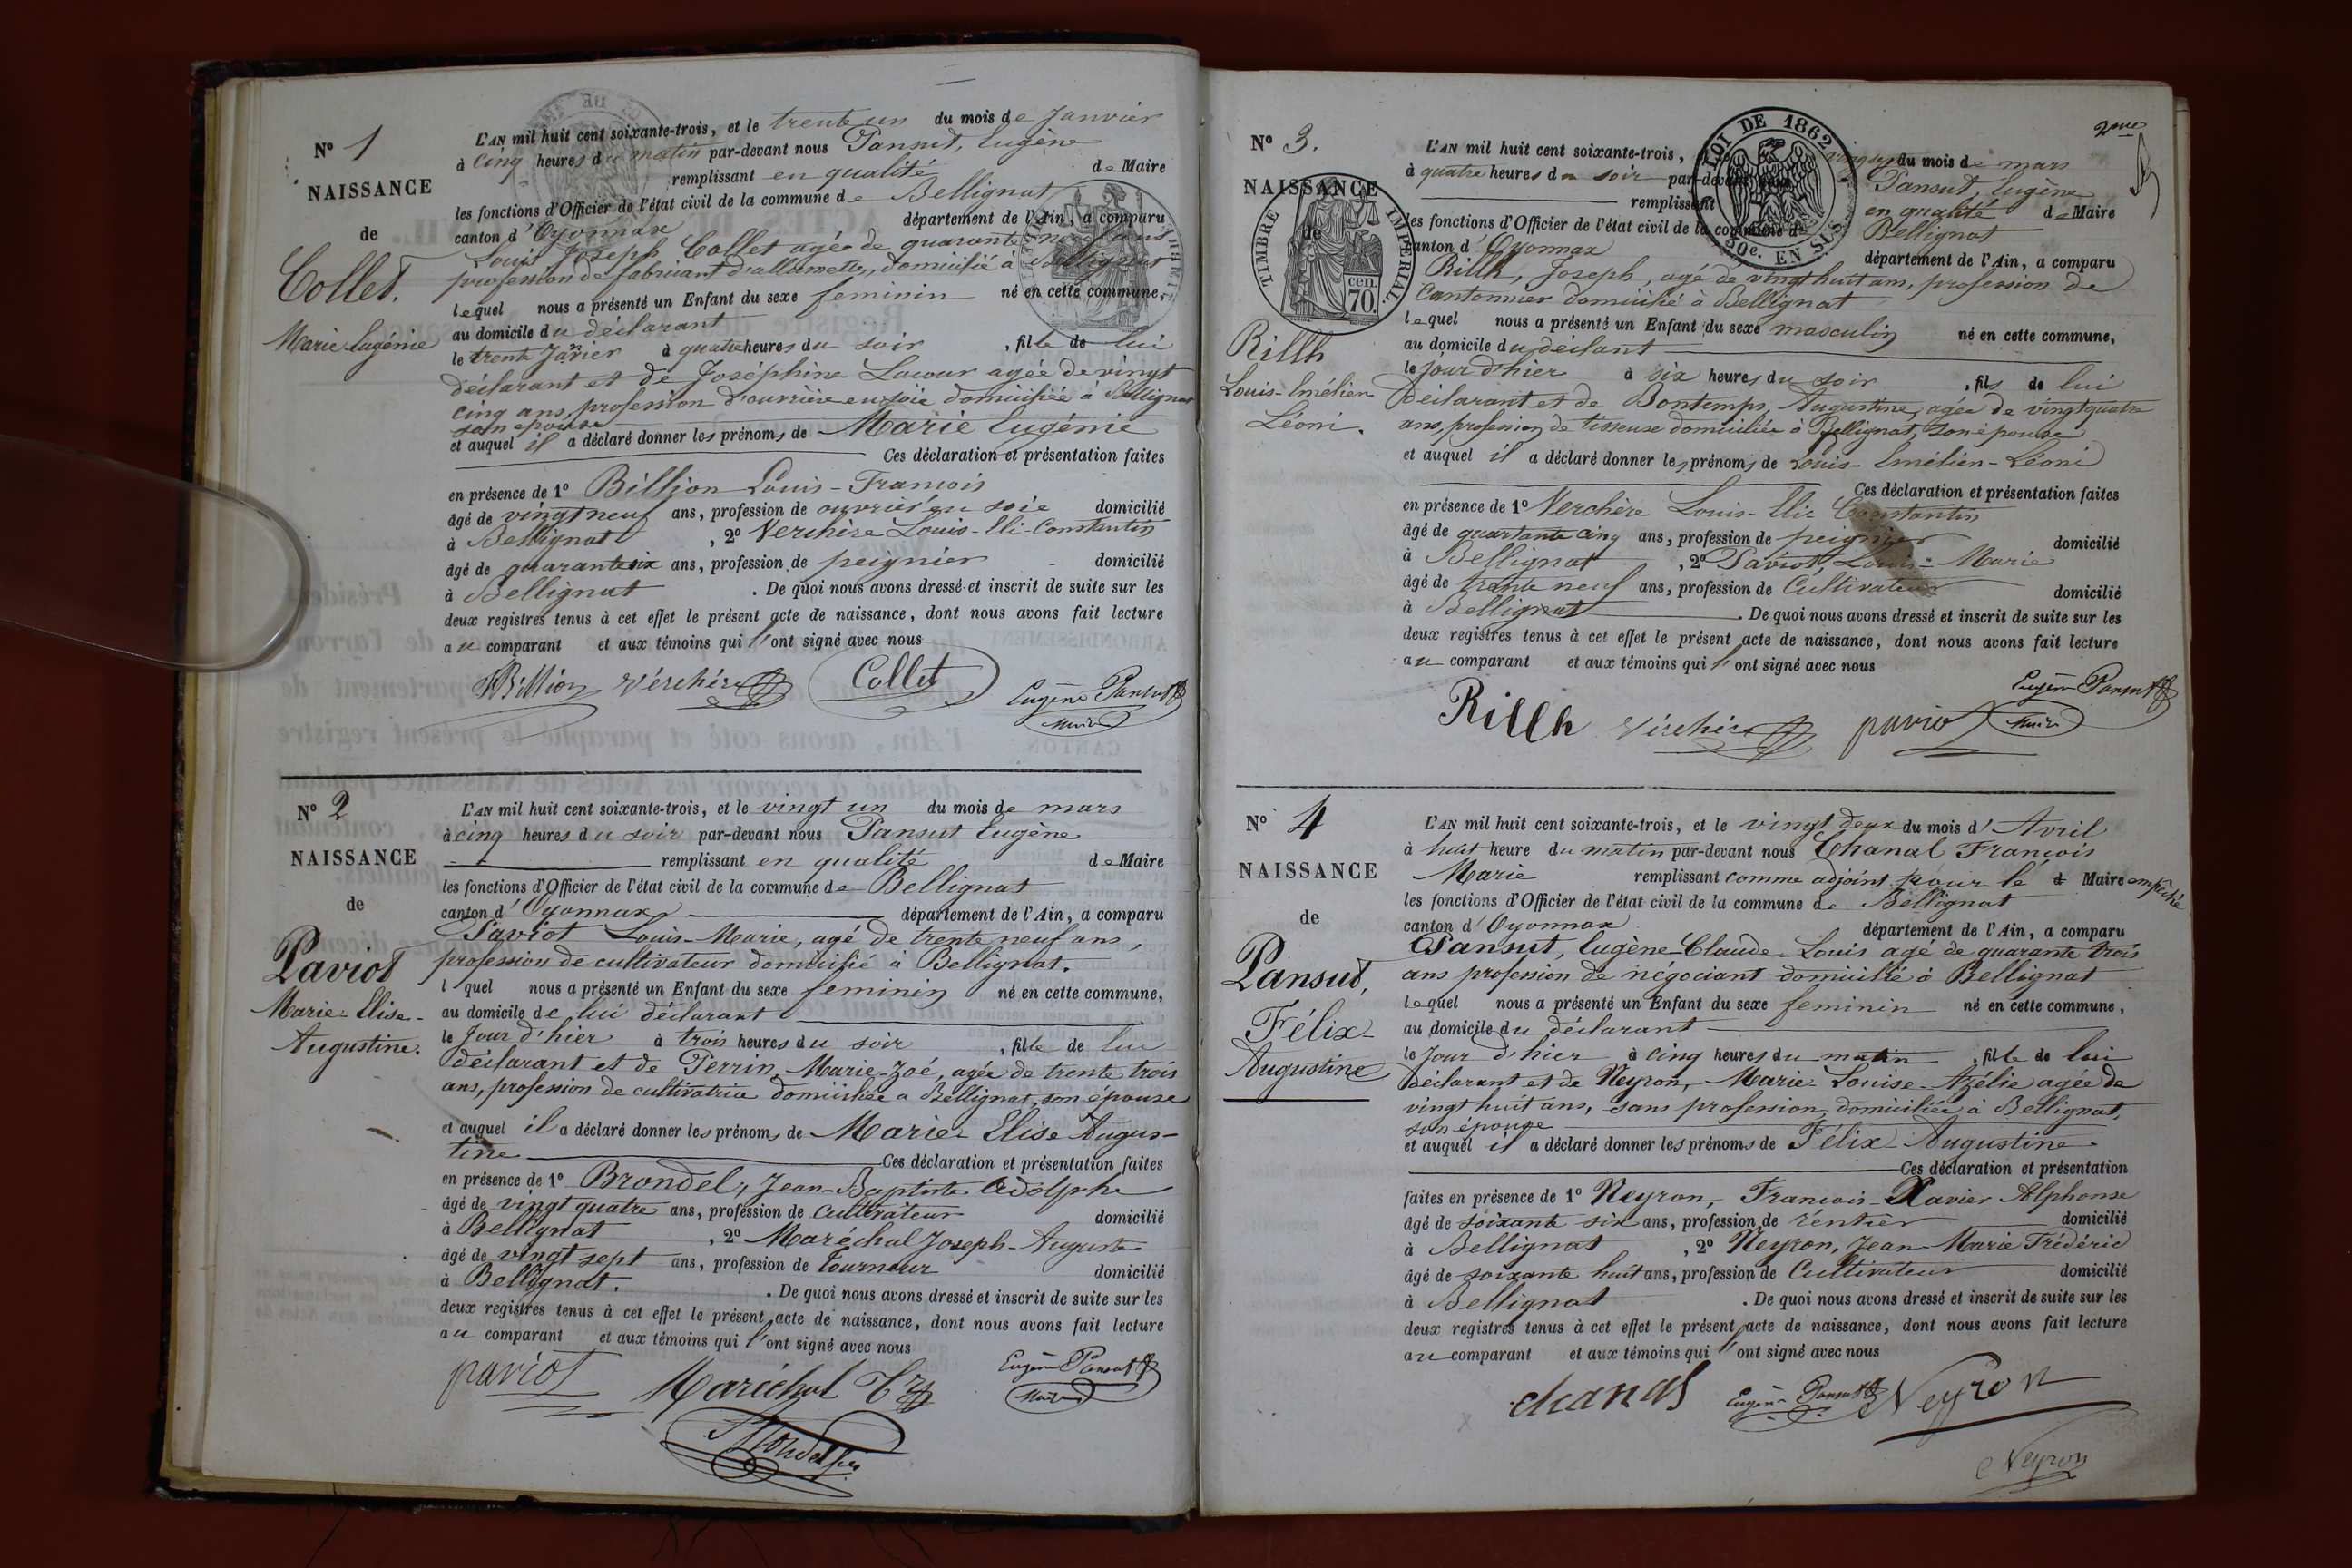 N° 1
NAISSANCE
de
Collet.
Marie Eugénie
L'AN mil huit cent soixante-trois, et le trente un du mois de Janvier
à Cinq heures du matin par-devant nous Pansut, Eugène
remplissant en qualité de Maire
les fonctions d'Officier de l'état civil de la commune de Bellignat
canton d'Oyonnax département de l'Ain, a comparu
Louis Joseph Collet agée de quarante neuf ans
profession de fabricant d'allumettes, domicilié à Bellignat
lequel nous a présenté un Enfant du sexe feminin né en cette commune,
au domicile du déclarant
le trente Janvier à quatre heures du soir, fille de lui
déclarant et de Joséphine Lacour agée de vingt
cinq ans, profession d'ouvrière en soie domiciliée à Bellignat
son épouse
et auquel il a déclaré donner les prénoms de Marie Eugénie
Ces déclaration et présentation faites
en présence de 1° Billion Louis-François
âgé de vingt neuf ans, profession de ouvrier en soie domicilié
à Bellignat, 2° Verchère Louis-Eli-Constantin
âgé de quarante six ans, profession de peignier domicilié
à Bellignat. De quoi nous avons dressé et inscrit de suite sur les
deux registres tenus à cet effet le présent acte de naissance, dont nous avons fait lecture
au comparant et aux témoins qui l'ont signé avec nous
Billion Verchère Collet Eugène Pansut
Maire
N° 2
NAISSANCE
de
Paviot
Marie-Elise-
Augustine.
L'AN mil huit cent soixante-trois, et le vingt un du mois de mars
à cinq heures du soir par-devant nous Pansut Eugène
remplissant en qualité de Maire
les fonctions d'Officier de l'état civil de la commune de Bellignat
canton d'Oyonnax département de l'Ain, a comparu
Paviot Louis-Marie, agé de trente neuf ans,
profession de cultivateur domicilié à Bellignat.
l quel nous a présenté un Enfant du sexe feminin né en cette commune,
au domicile de lui déclarant
le Jour d'hier à trois heures du soir, fille de lui
déclarant et de Perrin, Marie-Zoé, agée de trente trois
ans, profession de cultivatrice domiciliée a Bellignat, son épouse
et auquel il a déclaré donner les prénoms de Marie-Elise Augus-
tine Ces déclaration et présentation faites
en présence de 1° Brondel, Jean-Baptiste Adolphe
âgé de vingt quatre ans, profession de Cultivateur domicilié
à Bellignat, 2° Maréchal Joseph-Auguste
âgé de vingt sept ans, profession de Tourneur domicilié
à Bellignat. De quoi nous avons dressé et inscrit de suite sur les
deux registres tenus à cet effet le présent acte de naissance, dont nous avons fait lecture
au comparant et aux témoins qui l'ont signé avec nous
paviot Maréchal Eugène Pansut
Maire
Brondel
2me
N° 3.
NAISSANCE
de
Rillh
Louis-Emélien
Léoni.
TIMBRE IMPERIAL.
cen. 70.
LOI DE 1862
50c. EN SUS
L'AN mil huit cent soixante-trois, du mois de mars
à quatre heures du soir par-devant Pansut, Eugène
remplissant en qualité de Maire
les fonctions d'Officier de l'état civil de la commune de Bellignat
canton d'Oyonnax département de l'Ain, a comparu
Rillh, Joseph, agé de vingt huit ans, profession de
Cantonnier domicilié à Bellignat
lequel nous a présenté un Enfant du sexe masculin né en cette commune,
au domicile du déclant
le jour d'hier à six heures du soir, fils de lui
déclarant et de Bontemps, Augustine, agée de vingt quatre
ans, profession de tisseuse domiciliée à Bellignat, son épouse
et auquel il a déclaré donner les prénoms de Louis-Emélien-Léoni
Ces déclaration et présentation faites
en présence de 1° Verchère Louis-Eli-Constantin
âgé de quarante cinq ans, profession de peignier domicilié
à Bellignat, 2° Paviot, Louis-Marie
âgé de trente neuf ans, profession de Cultivateur domicilié
à Bellignat. De quoi nous avons dressé et inscrit de suite sur les
deux registres tenus à cet effet le présent acte de naissance, dont nous avons fait lecture
au comparant et aux témoins qui l'ont signé avec nous
Rillh Verchère paviot Eugène Pansut
Maire
N° 4
NAISSANCE
de
Pansut,
Félix-
Augustine
L'AN mil huit cent soixante-trois, et le vingt deux du mois d'Avril
à huit heure du matin par-devant nous Chanal François
Marie remplissant comme adjoint pour le d Maire empêché
les fonctions d'Officier de l'état civil de la commune de Bellignat
canton d'Oyonnax département de l'Ain, a comparu
Pansut, Eugène-Claude-Louis agé de quarante trois
ans profession de négociant domicilié à Bellignat
lequel nous a présenté un Enfant du sexe feminin né en cette commune,
au domicile du déclarant
le Jour d'hier à cinq heures du matin, fille de lui
déclarant et de Neyron, Marie-Louise-Azélie agée de
vingt huit ans, sans profession, domiciliée à Bellignat,
son épouse
et auquel il a déclaré donner les prénoms de Félix-Augustine
Ces déclaration et présentation
faites en présence de 1° Neyron, François-Xavier Alphonse
âgé de soixante six ans, profession de rentier domicilié
à Bellignat, 2° Neyron, Jean-Marie Frédéric
âgé de soixante huit ans, profession de Cultivateur domicilié
à Bellignat. De quoi nous avons dressé et inscrit de suite sur les
deux registres tenus à cet effet le présent acte de naissance, dont nous avons fait lecture
au comparant et aux témoins qui l'ont signé avec nous
chanal Eugène Pansut Neyron
Neyron